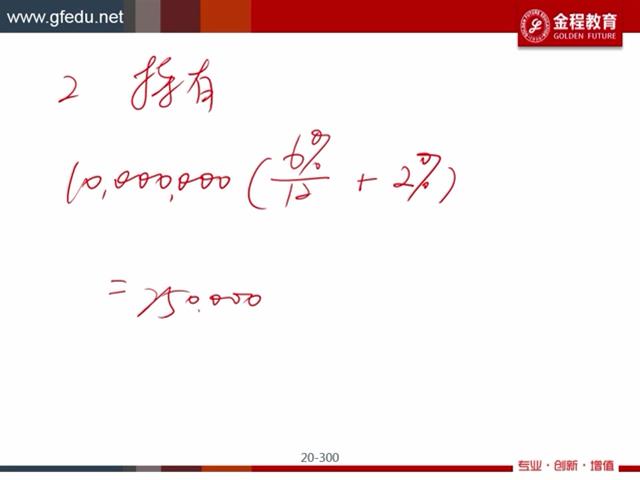 www.gfedu.net
金程教育
GOLDEN FUTURE
2 持有
10,000,000 (6%/12 + 2%)
= 250,000
20-300
专业·创新·增值